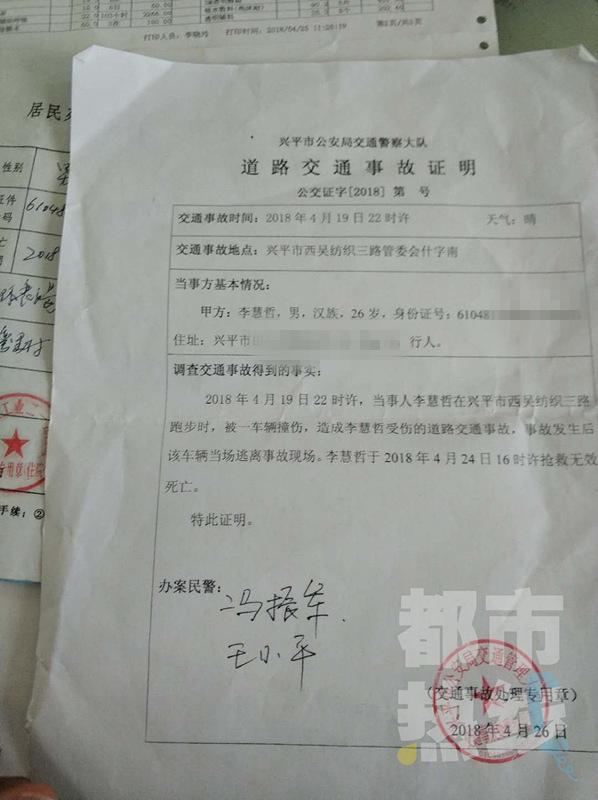 打印人员：李晓玲 打印时间：2018/04/25 11:26:59 第2页/共3页
居民
性别
61048
2018
工业二
专用章(住院
手续：②
兴平市公安局交通警察大队
道路交通事故证明
公交证字[2018] 第 号
交通事故时间：2018年4月19日22时许 天气：晴
交通事故地点：兴平市西吴纺织三路管委会什字南
当事方基本情况：
甲方：李慧哲，男，汉族，26岁，身份证号：61048
住址：兴平市 行人。
调查交通事故得到的事实：
2018年4月19日22时许，当事人李慧哲在兴平市西吴纺织三路
跑步时，被一车辆撞伤，造成李慧哲受伤的道路交通事故，事故发生后
该车辆当场逃离事故现场。李慧哲于2018年4月24日16时许抢救无效
死亡。
特此证明。
办案民警：
冯振军
王小平
都市
热线
公安局交通管理
（交通事故处理专用章）
2018年4月26日